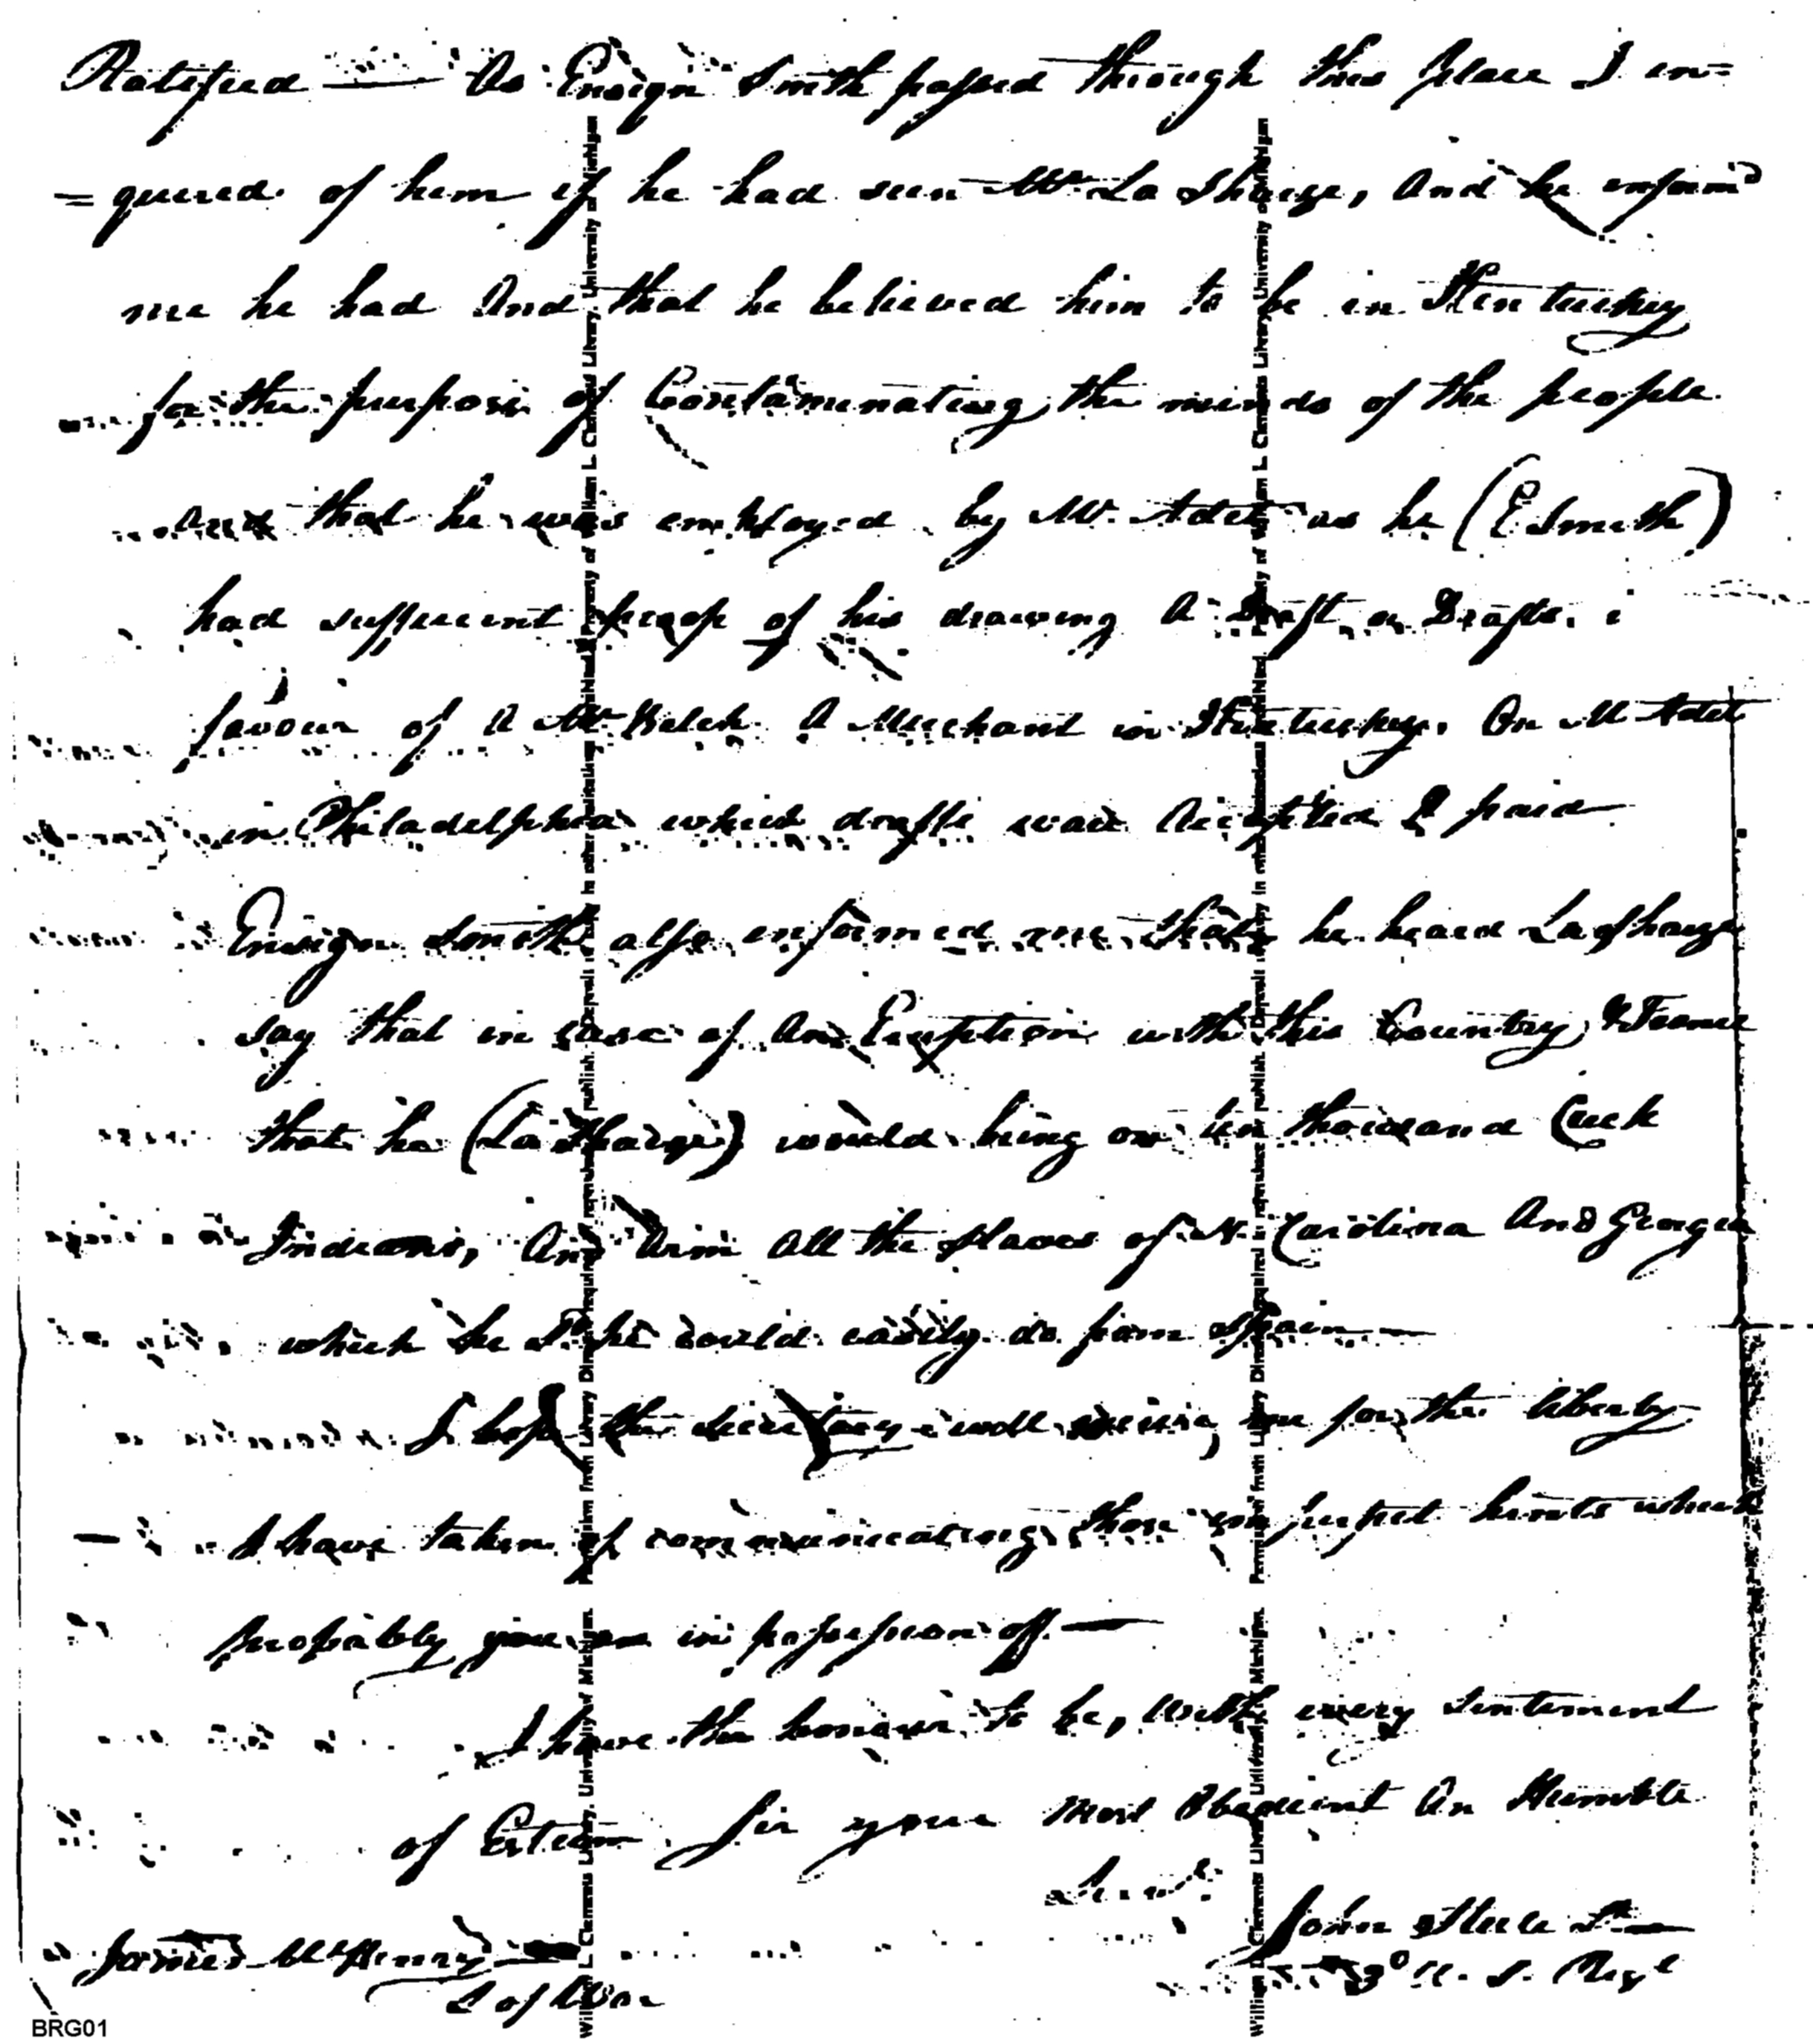 Ratified — As Ensign Smith passed through this place I in=
=quired of him if he had seen Mr. La Shaize, And he inform'd
me he had And that he believed him to be in Kentuckey
for the purpose of Contaminating the minds of the people
And that he was employed by Mr. Adet as he (E Smith)
had suffucient proof of his drawing A Draft or Drafts i
favour of A Mr Welch A Merchant in Kentuckey. On M Adet
in Philadelphia which drafts was Accepted & paid
Ensign Smith also informed me that he heard La Shaize
say that in case of An Eruption with this Country & France
that he (La Shaize) would bring on ten thousand Creek
Indians, And Arm All the slaves of N. Carolina And Georgia
which he Sd. he could easily do from Spain —
I hope the Secretary will excuse me for the liberty
I have taken of communicating those imperfect hints which
probably you are in possession off —
I have the honour to be, With every sentiment
of Esteem Sir your Most Obedient An Humble
Servt.
John Steele Lt
3d U. S. Regt
James McHenry
S of War
William L. Clements Library, University of Michigan.
William L. Clements Library, University of Michigan.
BRG01